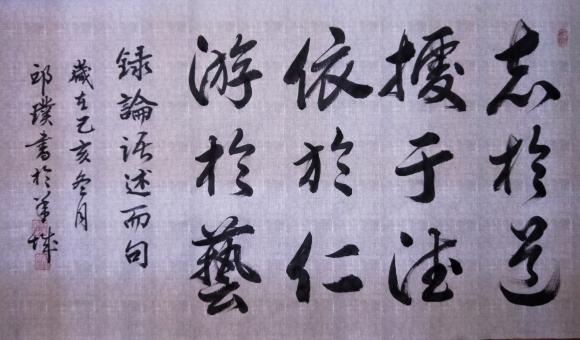 志於道
據于德
依於仁
游於藝
録論语述而句
歲在己亥冬月
邱璞書於羊城